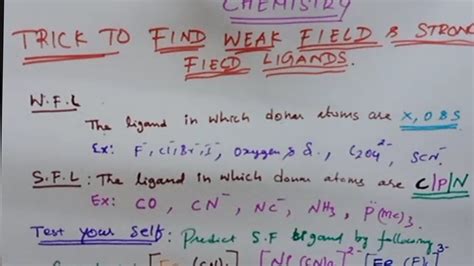 CHEMISTRY
TRICK TO FIND WEAK FIELD & STRON
FIELD LIGANDS.
W.F.L
The ligand in which donar atoms are X, O & S
Ex: F⁻, Cl⁻, Br⁻, I⁻, Oxygen & S., C₂O₄²⁻, SCN⁻
S.F.L: The ligand in which donar atoms are C|P|N
Ex: CO, CN⁻, NC⁻, NH₃, P(Me)₃.
Test your Self: Predict S.F ligand by following